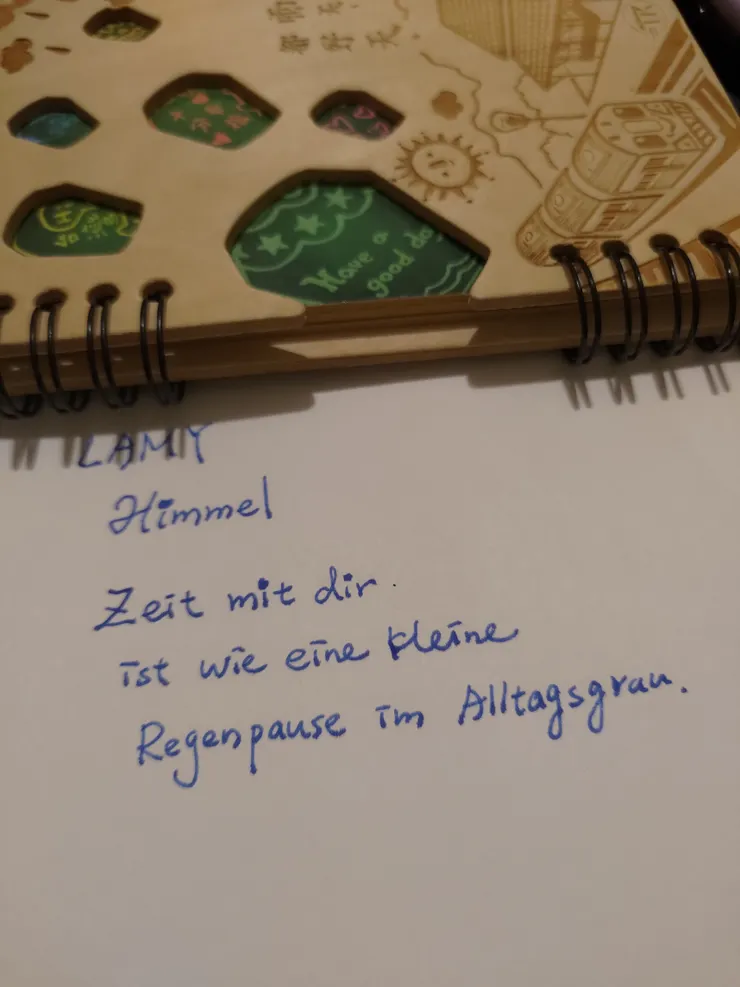 雨 天
都 好 天
Have a
good da
LAMY
Himmel
Zeit mit dir.
ist wie eine kleine
Regenpause im Alltagsgrau.